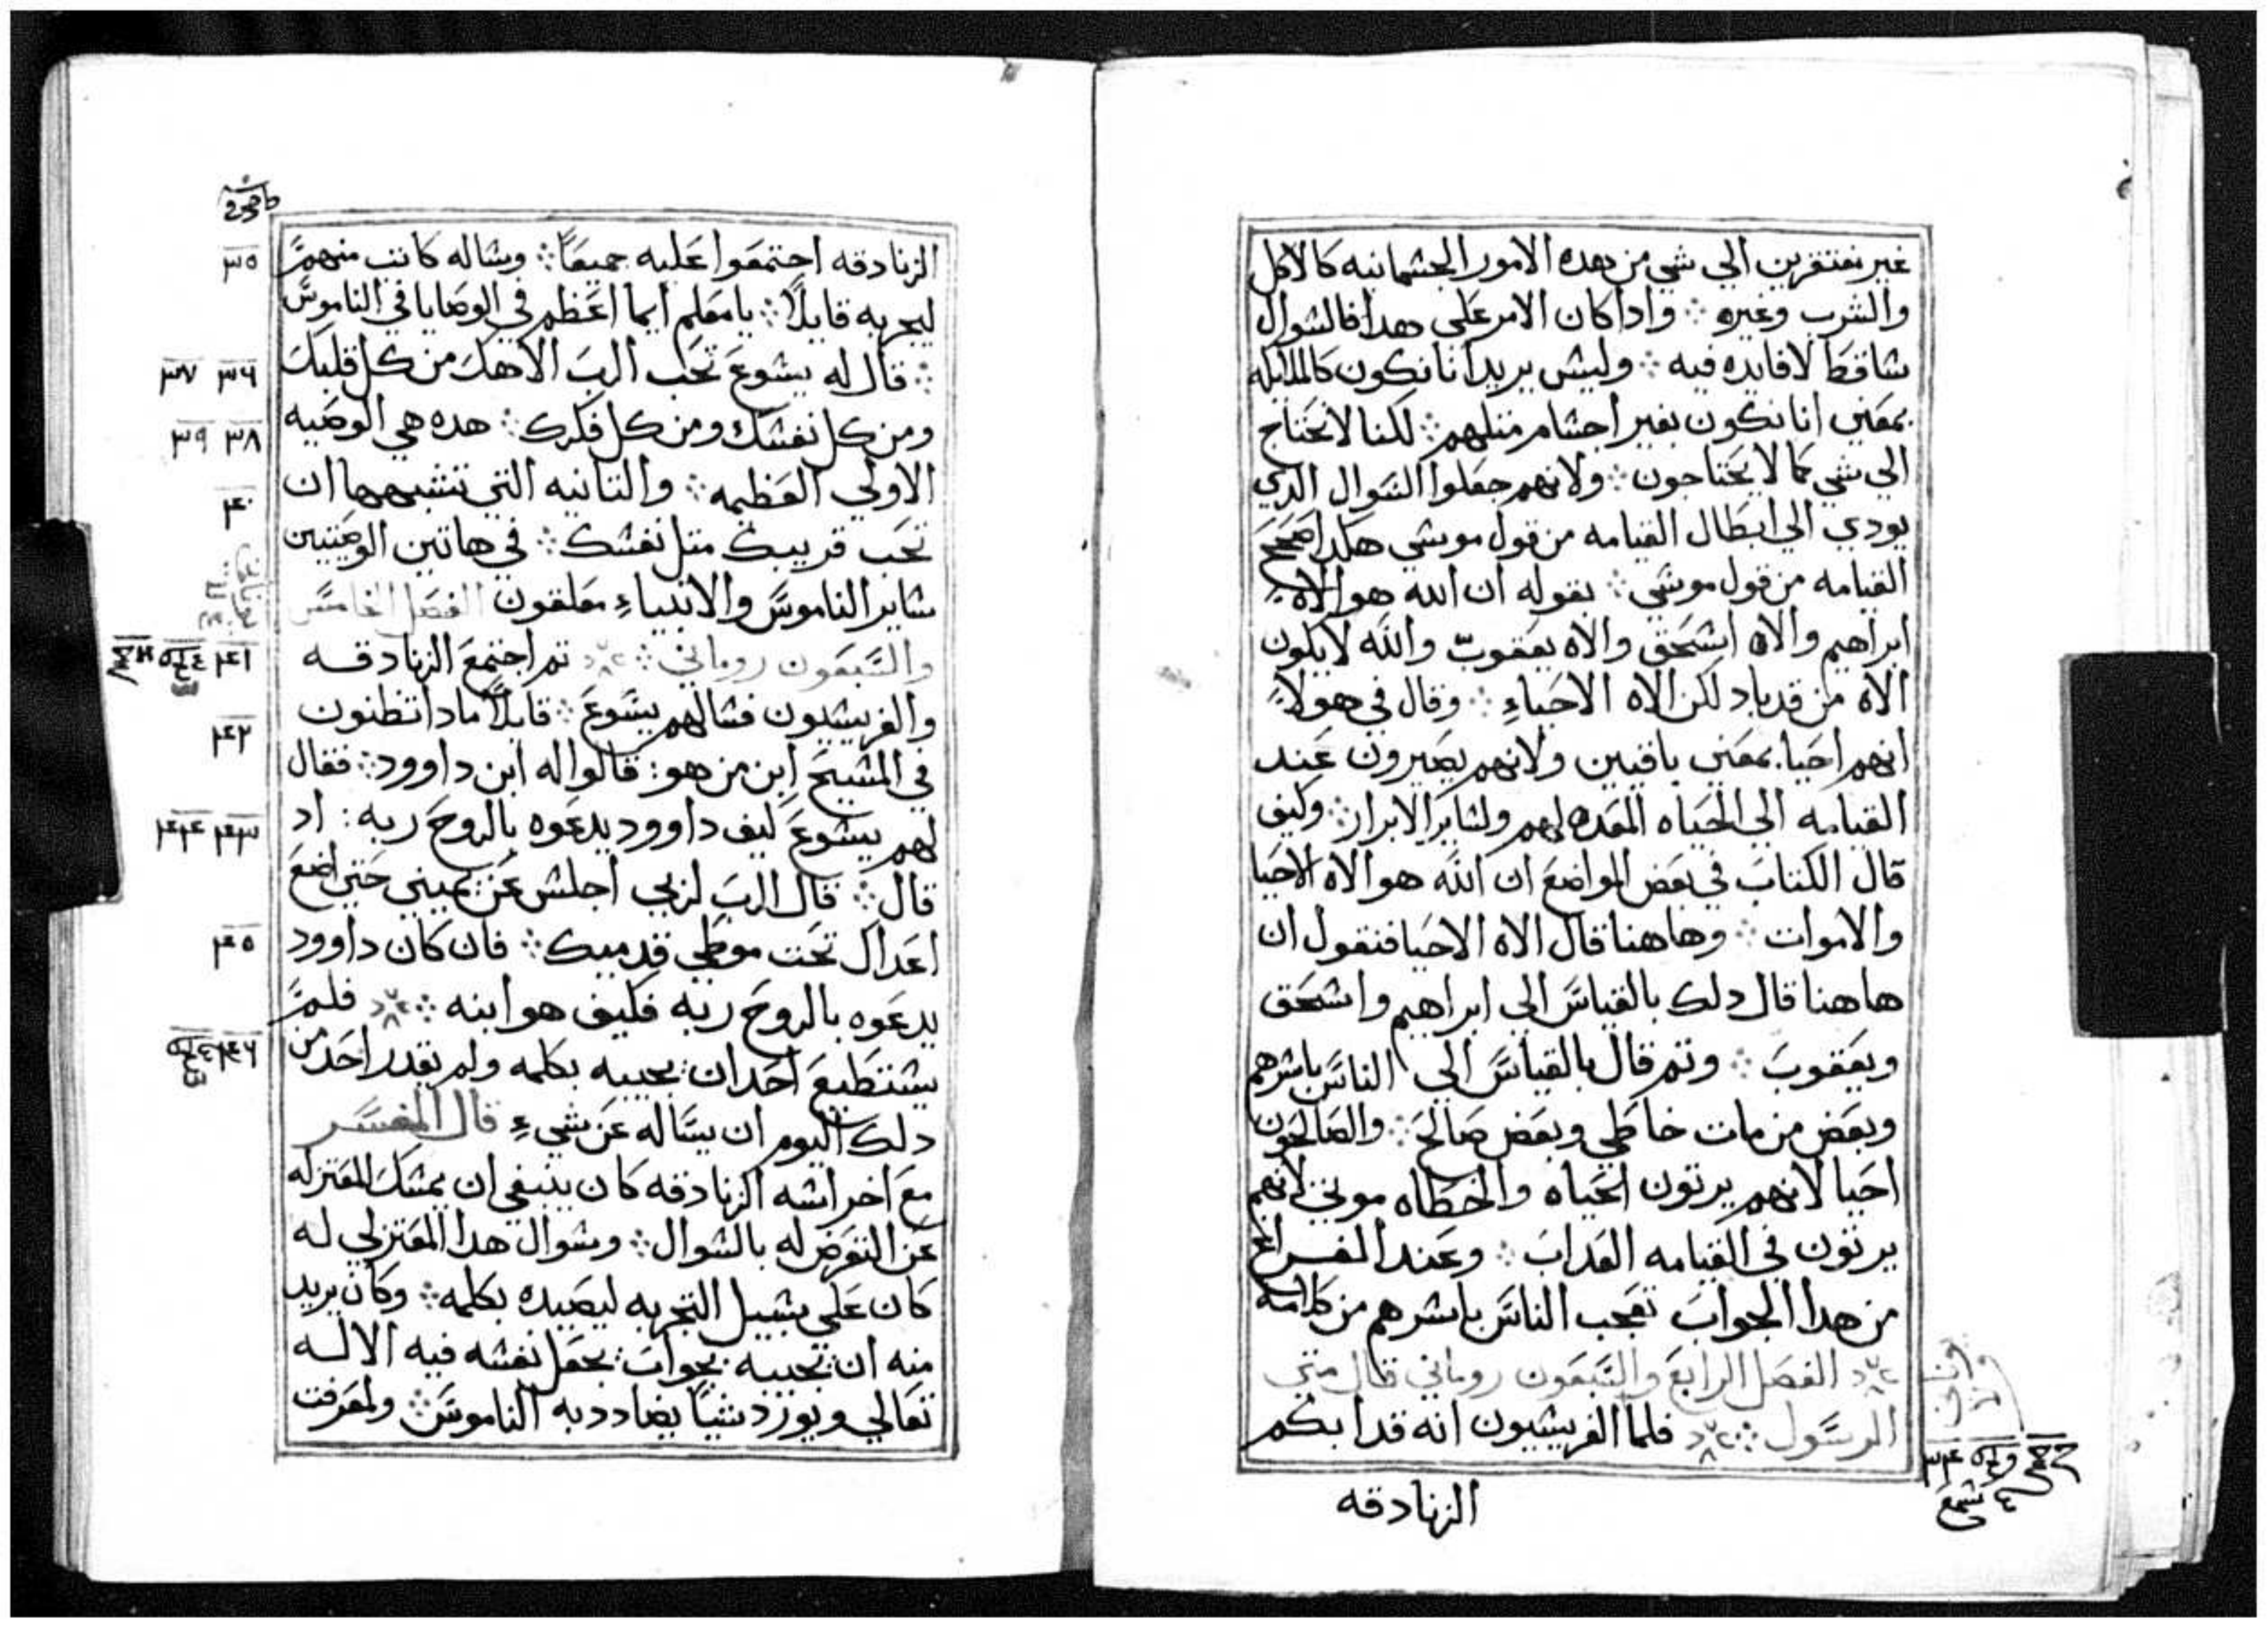 غير مفتقرين الي شي من هده الامور الجشمانيه كالاكل
والشرب وغيره ؛ وادا كان الامر علي هدا فالشوال
شاقط لا فايده فيه ؛ وليش يريد انا نكون كالملايكه
بمعني انا نكون بغير اجشام متلهم ؛ لكنا لا نحتاج
الي شي كما لا يحتاجون ؛ ولانهم جعلوا الشوال الدي
يودي الي ابطال القيامه من قول موشي هكدا صحح
القيامه من قول موشي ؛ بقوله ان الله هو الاه
ابراهيم والاه اشحق والاه يعقوب والله لا يكون
الاه من قد باد لكن الاه الاحياء ؛ وقال في هولاء
انهم احيا بمعني باقيين ولانهم يصيرون عند
القيامه الي الحياه المعده لهم ولشاير الابرار ؛ وكيف
قال الكتاب في بعض المواضع ان الله هو الاه الاحيا
والاموات ؛ وهاهنا قال الاه الاحيا فنقول ان
هاهنا قال دلك بالقياس الي ابراهيم واشحق
ويعقوب ؛ وتم قال بالقياس الي الناس باشرهم
وبعض من مات خاطي وبعض صالح ؛ والصالحون
احيا لانهم يرتون الحياه والخطاه موتي لانهم
يرتون في القيامه العداب ؛ وعند الفراغ
من هدا الجواب تعجب الناس باشرهم من كلامه
الفصل الرابع والتسعون روماني قال متي
الرسول ؛ فلما الفريشيون انه قد ابكم
٣٤
الزنادقه
الزنادقه اجتمعوا عليه جميعًا ؛ وشاله كاتب منهم
ليجربه قايلًا ؛ يا معلم ايما اعظم في الوصايا في الناموس
؛ قال له يشوع تحب الرب الاهك من كل قلبك
ومن كل نفشك ومن كل فكرك ؛ هده هي الوصيه
الاولي العظيمه ؛ والتانيه التي تشبهها ان
تحب قريبك متل نفشك ؛ في هاتين الوصيتين
شاير الناموس والانبياء معلقون الفصل الخامس
والتسعون روماني ؛ تم اجتمع الزنادقه
والفريشيون فشالهم يشوع ؛ قايلًا مادا تظنون
في المشيح ابن من هو ؛ قالوا له ابن داوود ؛ فقال
لهم يشوع كيف داوود يدعوه بالروح ربه : اد
قال ؛ قال الرب لربي اجلش عن يميني حتي اضع
اعداك تحت موطي قدميك ؛ فان كان داوود
يدعوه بالروح ربه فكيف هو ابنه ؛ فلم
يشتطيع احد ان يجيبه بكلمه ولم يقدر احد من
دلك اليوم ان يساله عن شيء قال المفسر
مع اخراشه الزنادقه كان ينبغي ان يمشك المعتزله
عن التعرض له بالشوال ؛ وشوال هدا المعتزلي له
كان علي شبيل التجربه ليصيده بكلمه ؛ وكان يريد
منه ان يجيبه بجواب يجعل نفشه فيه الاله
تعالي ويورد شيًا يضادد به الناموس ؛ ولمعرفت
٣٥
٣٦ ٣٧
٣٨ ٣٩
٤٠
٤١
٤٢
٤٣ ٤٤
٤٥
٤٦